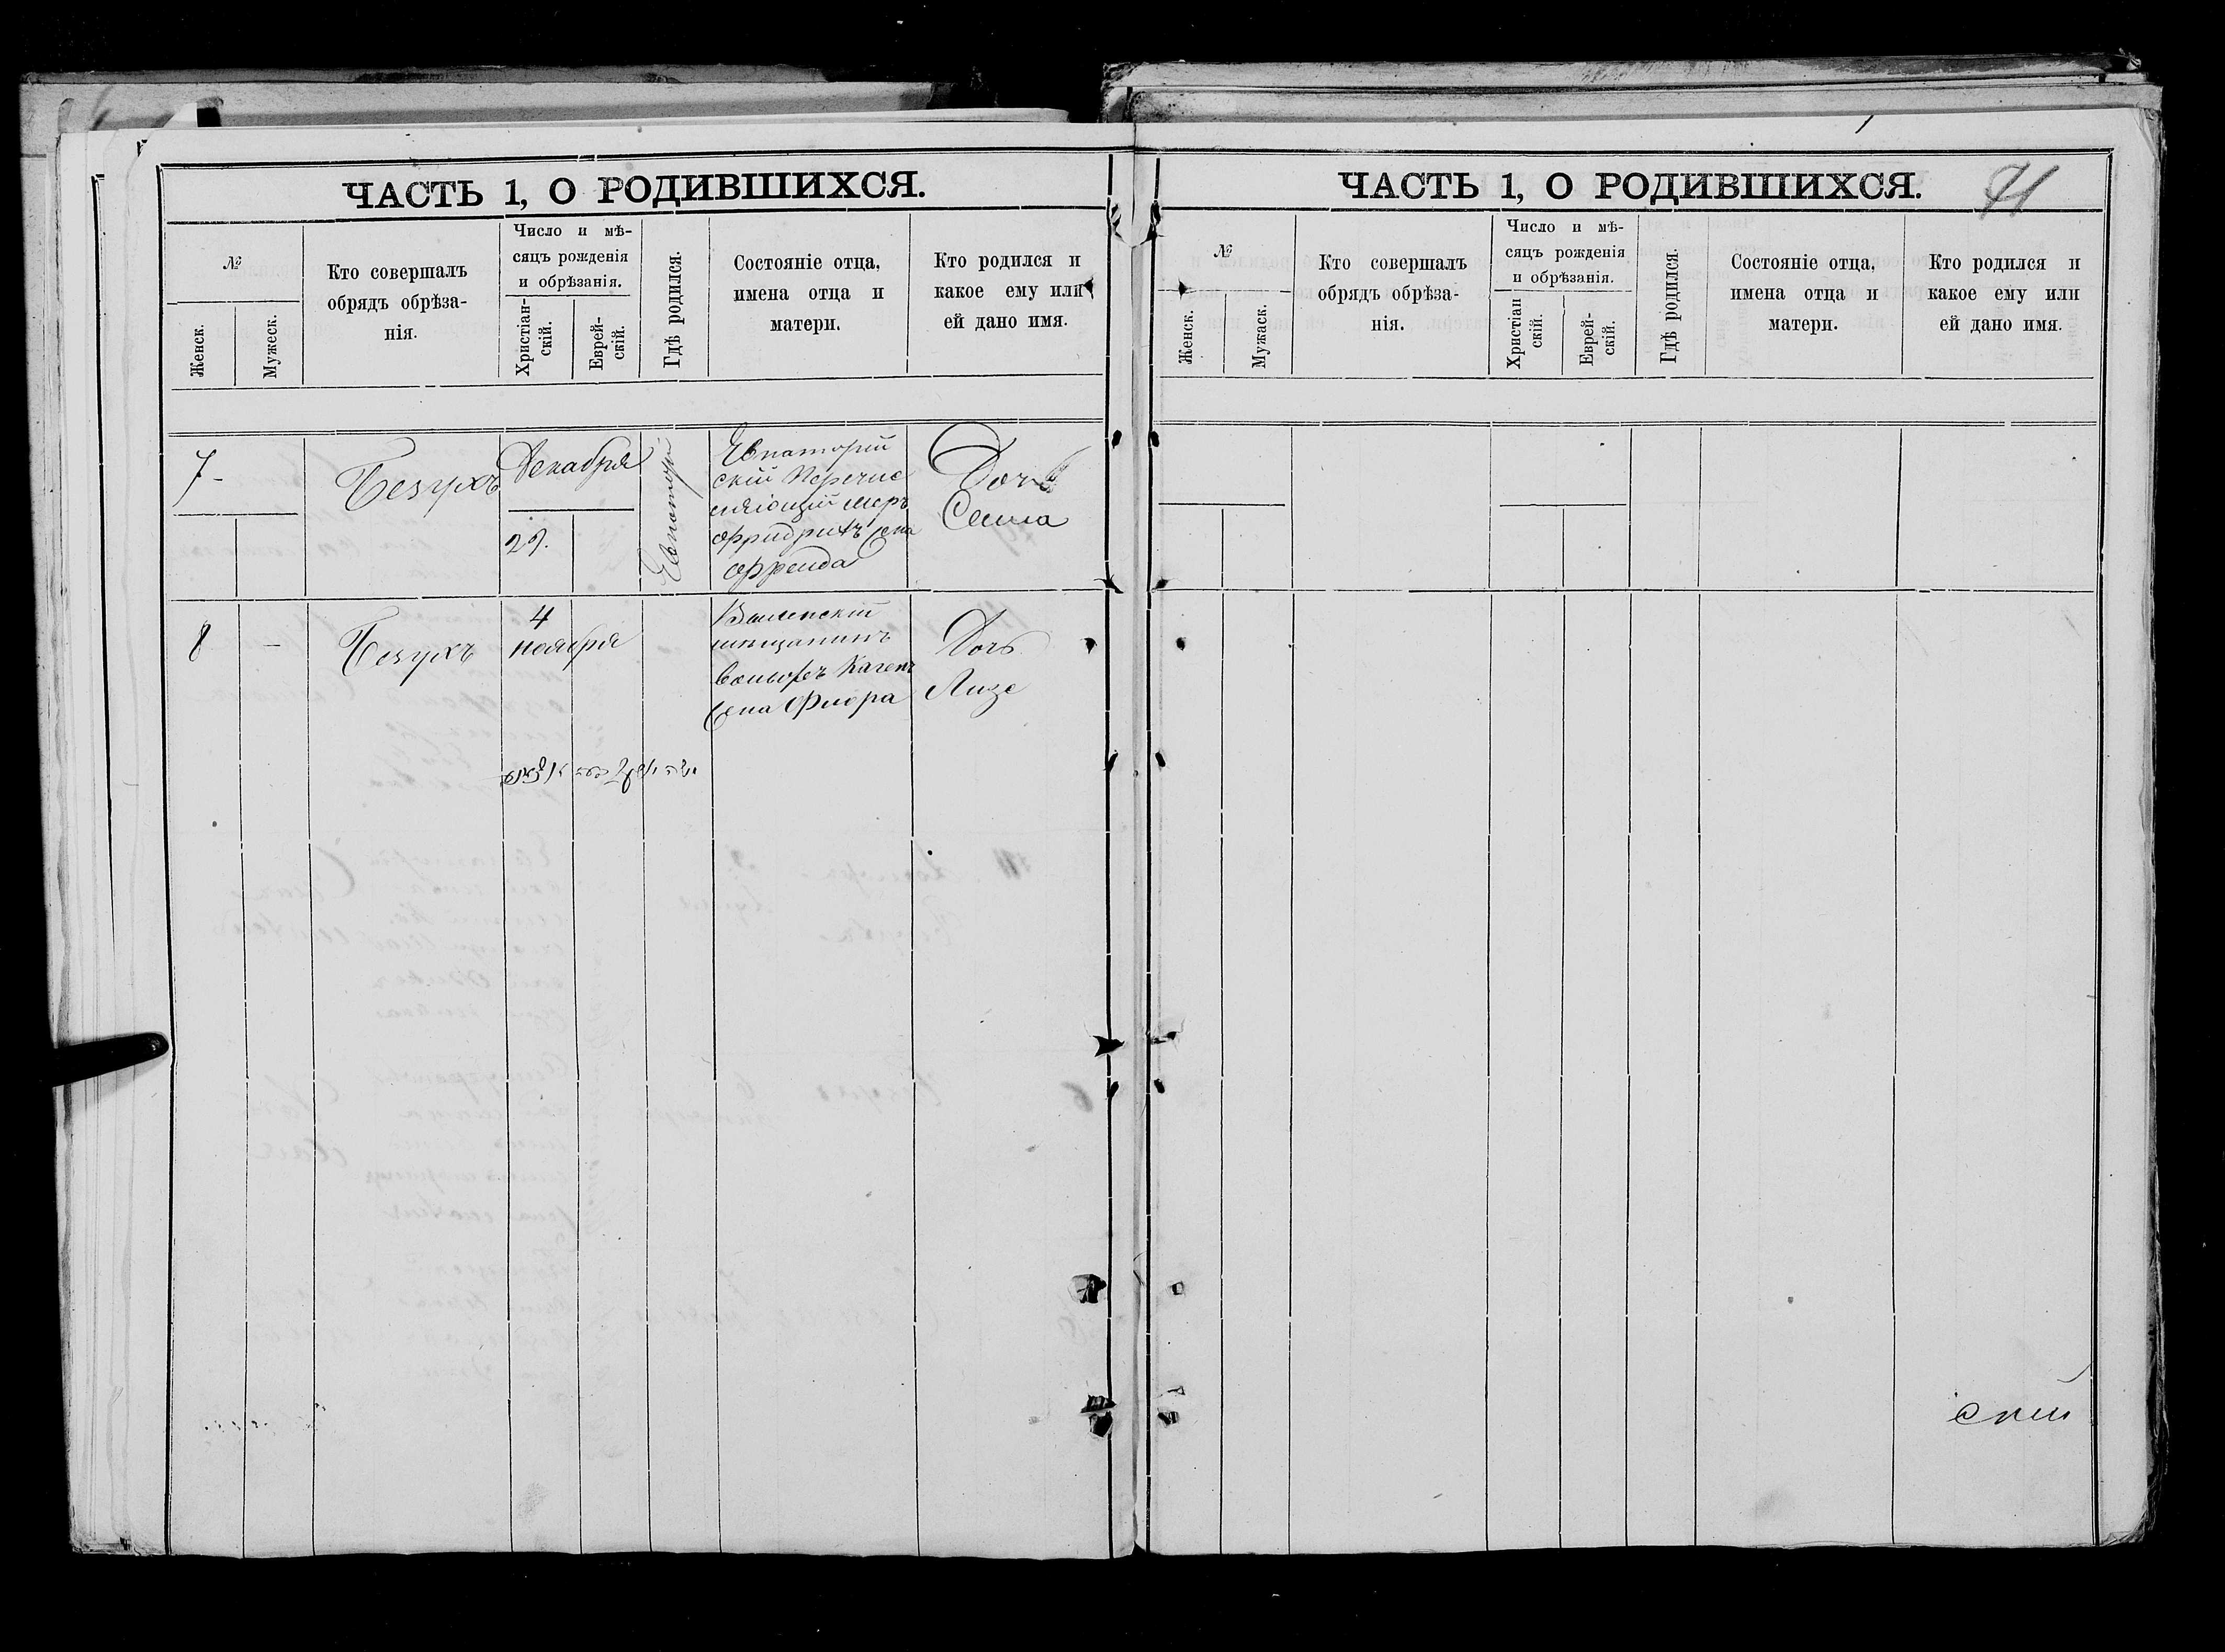 ЧАСТЬ 1, О РОДИВШИХСЯ.
№
Женск.
Мужеск.
Кто совершалъ
обрядъ обрѣза-
нія.
Число и мѣ-
сяцъ рожденія
и обрѣзанія.
Христіан-
скій.
Еврей-
скій.
Гдѣ родился.
Состояніе отца,
имена отца и
матери.
Кто родился и
какое ему или
ей дано имя.
7 -
Безухъ
Декабря
29.
Евпаторі
Евпаторій
скій Перечис
ляющій
Фридрихъ жена
Фрейда
Дочь
8
-
Безухъ
4
ноября
Виленскій
мѣщанинъ
Вольфъ Каген
жена Фиора
Дочь
Лизе
ЧАСТЬ 1, О РОДИВШИХСЯ.
71
№
Женск.
Мужаск.
Кто совершалъ
обрядъ обрѣза-
нія.
Число и мѣ-
сяцъ рожденія
и обрѣзанія.
Христіан
скій.
Еврей-
скій.
Гдѣ родился.
Состояніе отца,
имена отца и
матери.
Кто родился и
какое ему или
ей дано имя.